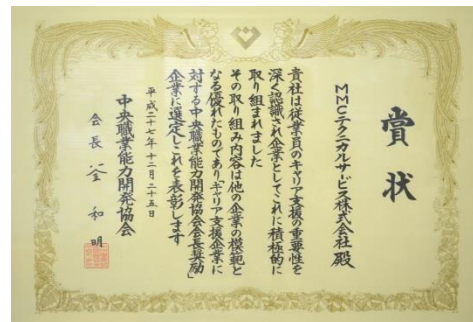 賞状
MMCテクニカルサービス株式会社 殿
貴社は従業員のキャリア支援の重要性を
深く認識され企業としてこれに積極的に
取り組まれました
その取り組み内容は他の企業の模範と
なる優れたものでありキャリア支援企業に
対する中央職業能力開発協会会長奨励
企業に選定しこれを表彰します
平成二十七年十二月二十五日
中央職業能力開発協会
会長 釜 和明